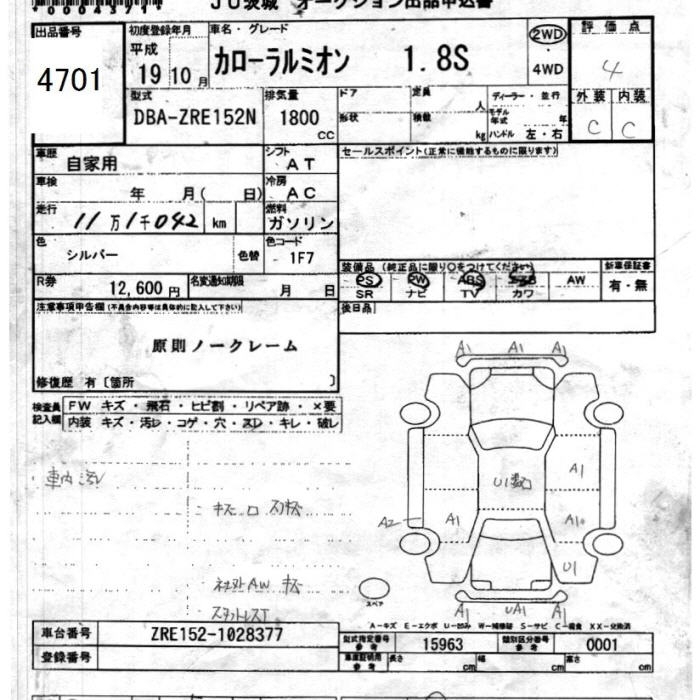 *0004371*
JU茨城 オークション出品申込書
出品番号 初度登録年月 車名・グレード 2WD 評価点
4701 平成 19 10月 カローラルミオン 1.8S 4WD 4
型式 排気量 ドア 定員 人 ディーラー・並行 外装 内装
DBA-ZRE152N 1800 cc 形状 積載 kg モデル年式 年 ハンドル 左・右 C C
車歴 自家用 シフト AT セールスポイント(正常に機能するものに限ります)
車検 年 月( 日) 冷房 AC
走行 11万1千042 km 燃料 ガソリン
色 シルバー 色替 色コード 1F7
装備品(純正品に限り○をつけてください) 新車保証書
R券 12,600円 名変通知期限 月 日 PS PW ABS AW 有・無
SR ナビ TV カワ
注意事項申告欄(不具合内容等は具体的に記入して下さい) 後日品
原則ノークレーム
修復歴 有〔箇所 〕
A1 A1 A1
検査員記入欄 FW キズ・飛石・ヒビ割・リペア跡・×要
内装 キズ・汚レ・コゲ・穴・スレ・キレ・破レ
A1
車内
U1
キズ
A2 A1 A1
社外AW キズ
U1
スペア
A1 UA1 A1
A-キズ E-エクボ U-凹み W-補修跡 S-サビ C-腐食 XX-交換済
車台番号 ZRE152-1028377 型式指定番号 15963 類別区分番号 0001
登録番号 車庫証明用参考 長さ cm 幅 cm 高さ cm